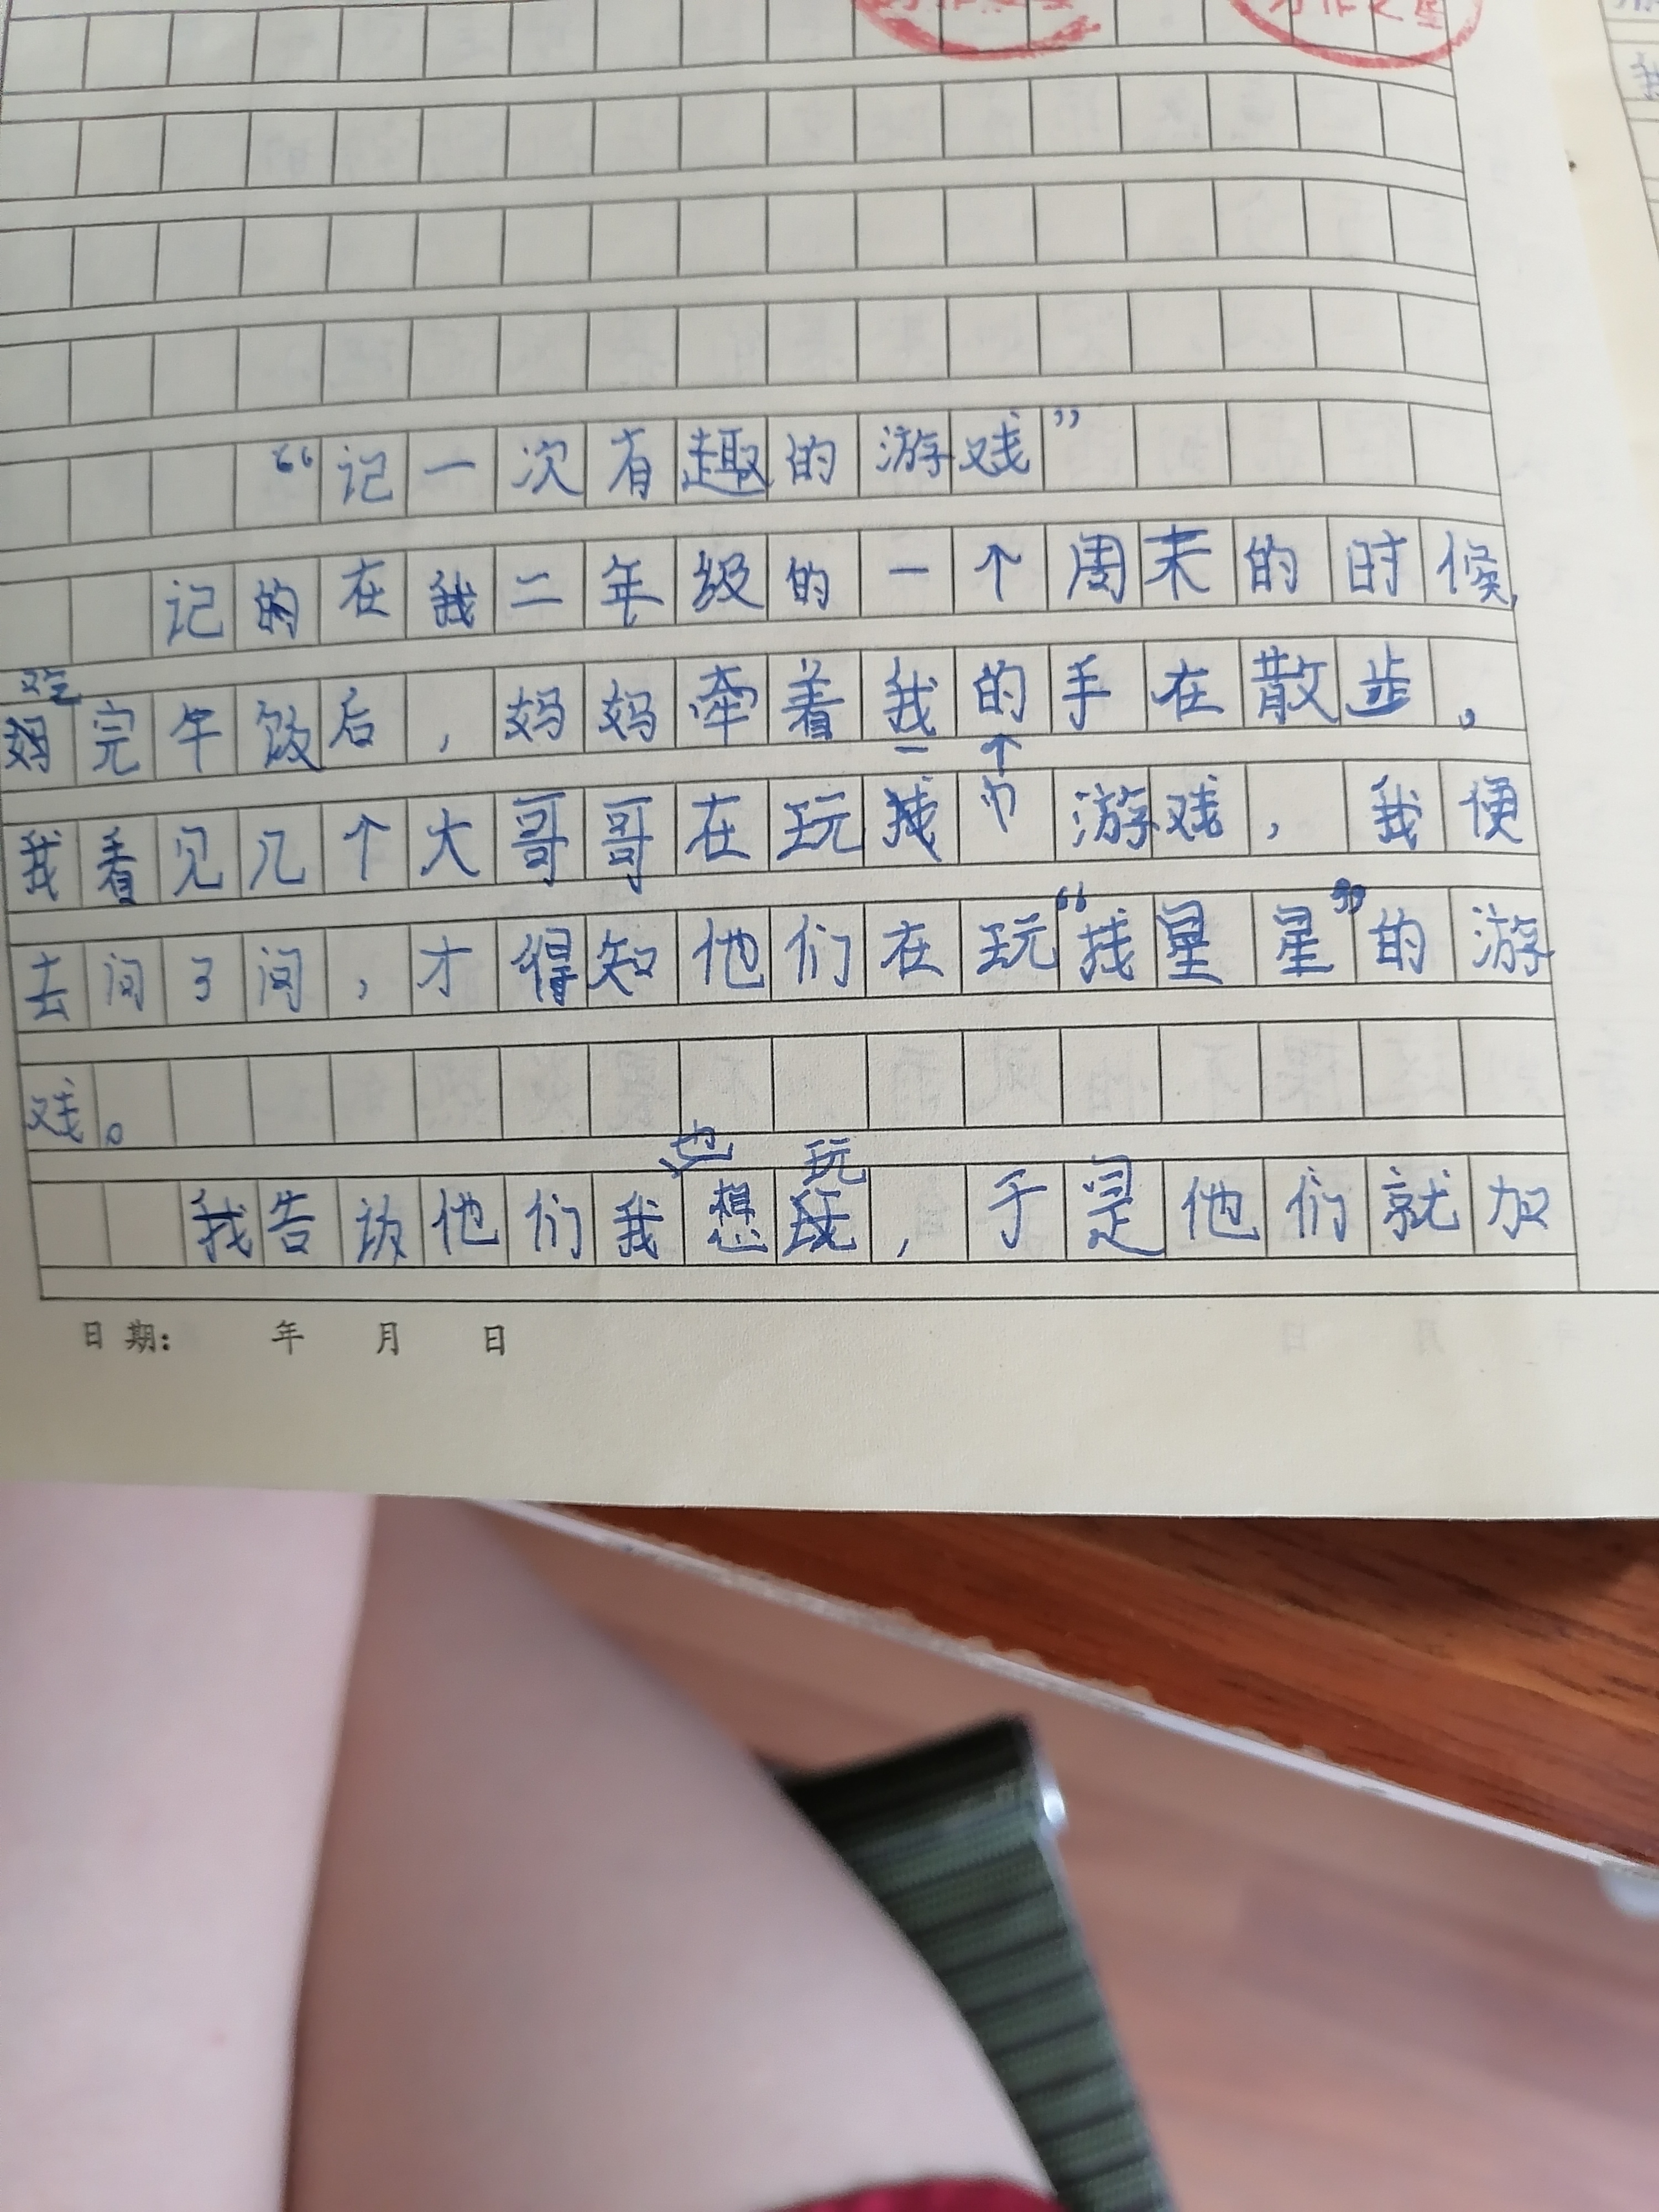 “记一次有趣的游戏”
记的在我二年级的一个周末的时候，
完午饭后，妈妈牵着我的手在散步，
我看见几个大哥哥在玩一个游戏，我便
去问了问，才得知他们在玩“找星星”的游
戏。
我告诉他们我也想玩，于是他们就加
日期：  年  月  日